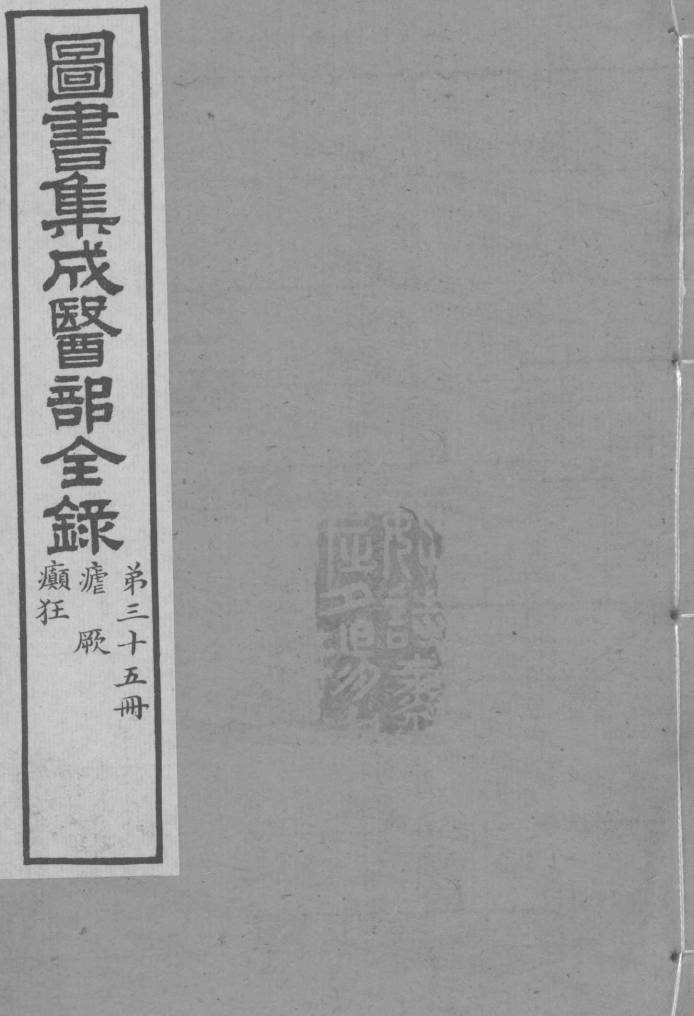 圖書集成醫部全錄
弟三十五冊
瘧 厥
癲狂